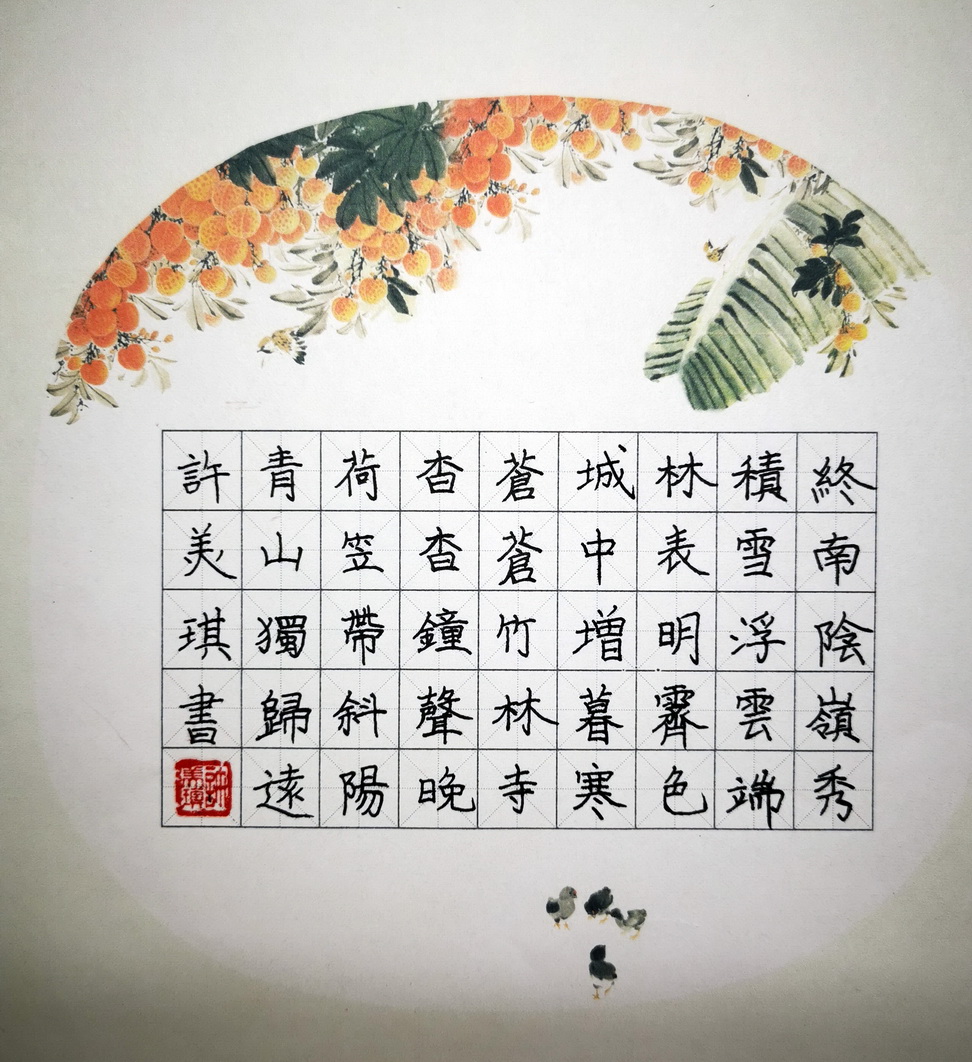 終南陰嶺秀
積雪浮雲端
林表明霽色
城中増暮寒
蒼蒼竹林寺
杳杳鐘聲晚
荷笠帶斜陽
青山獨歸遠
許美琪書